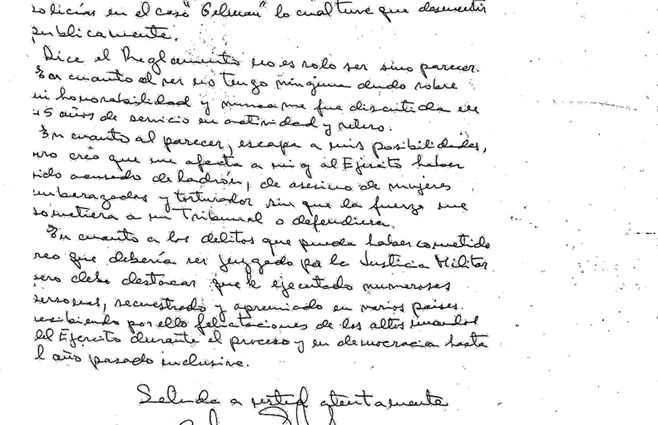 olicías en el caso "Gelman" lo cual tuve que desmentir
publicamente.
Dice el Reglamento no es solo ser sino parecer.
En cuanto al ser no tengo ninguna duda sobre
mi honorabilidad y nunca me fue discutida en
45 años de servicio en actividad y retiro.
En cuanto al parecer, escapa a mis posibilidades,
ero creo que me afecta a mi y al Ejercito haber
sido acusado de ladrón, de asesino de mujeres
embarazadas y torturador sin que la fuerza me
sometiera a un Tribunal o defendiera.
En cuanto a los delitos que pueda haber cometido
reo que debería ser juzgado por la Justicia Militar
ero debo destacar que he ejecutado numerosas
personas, secuestrado y apremiado en varios países.
recibiendo por ello felicitaciones de los altos mandos
del Ejercito durante el proceso y en democracia hasta
l año pasado inclusive.
Saluda a usted atentamente